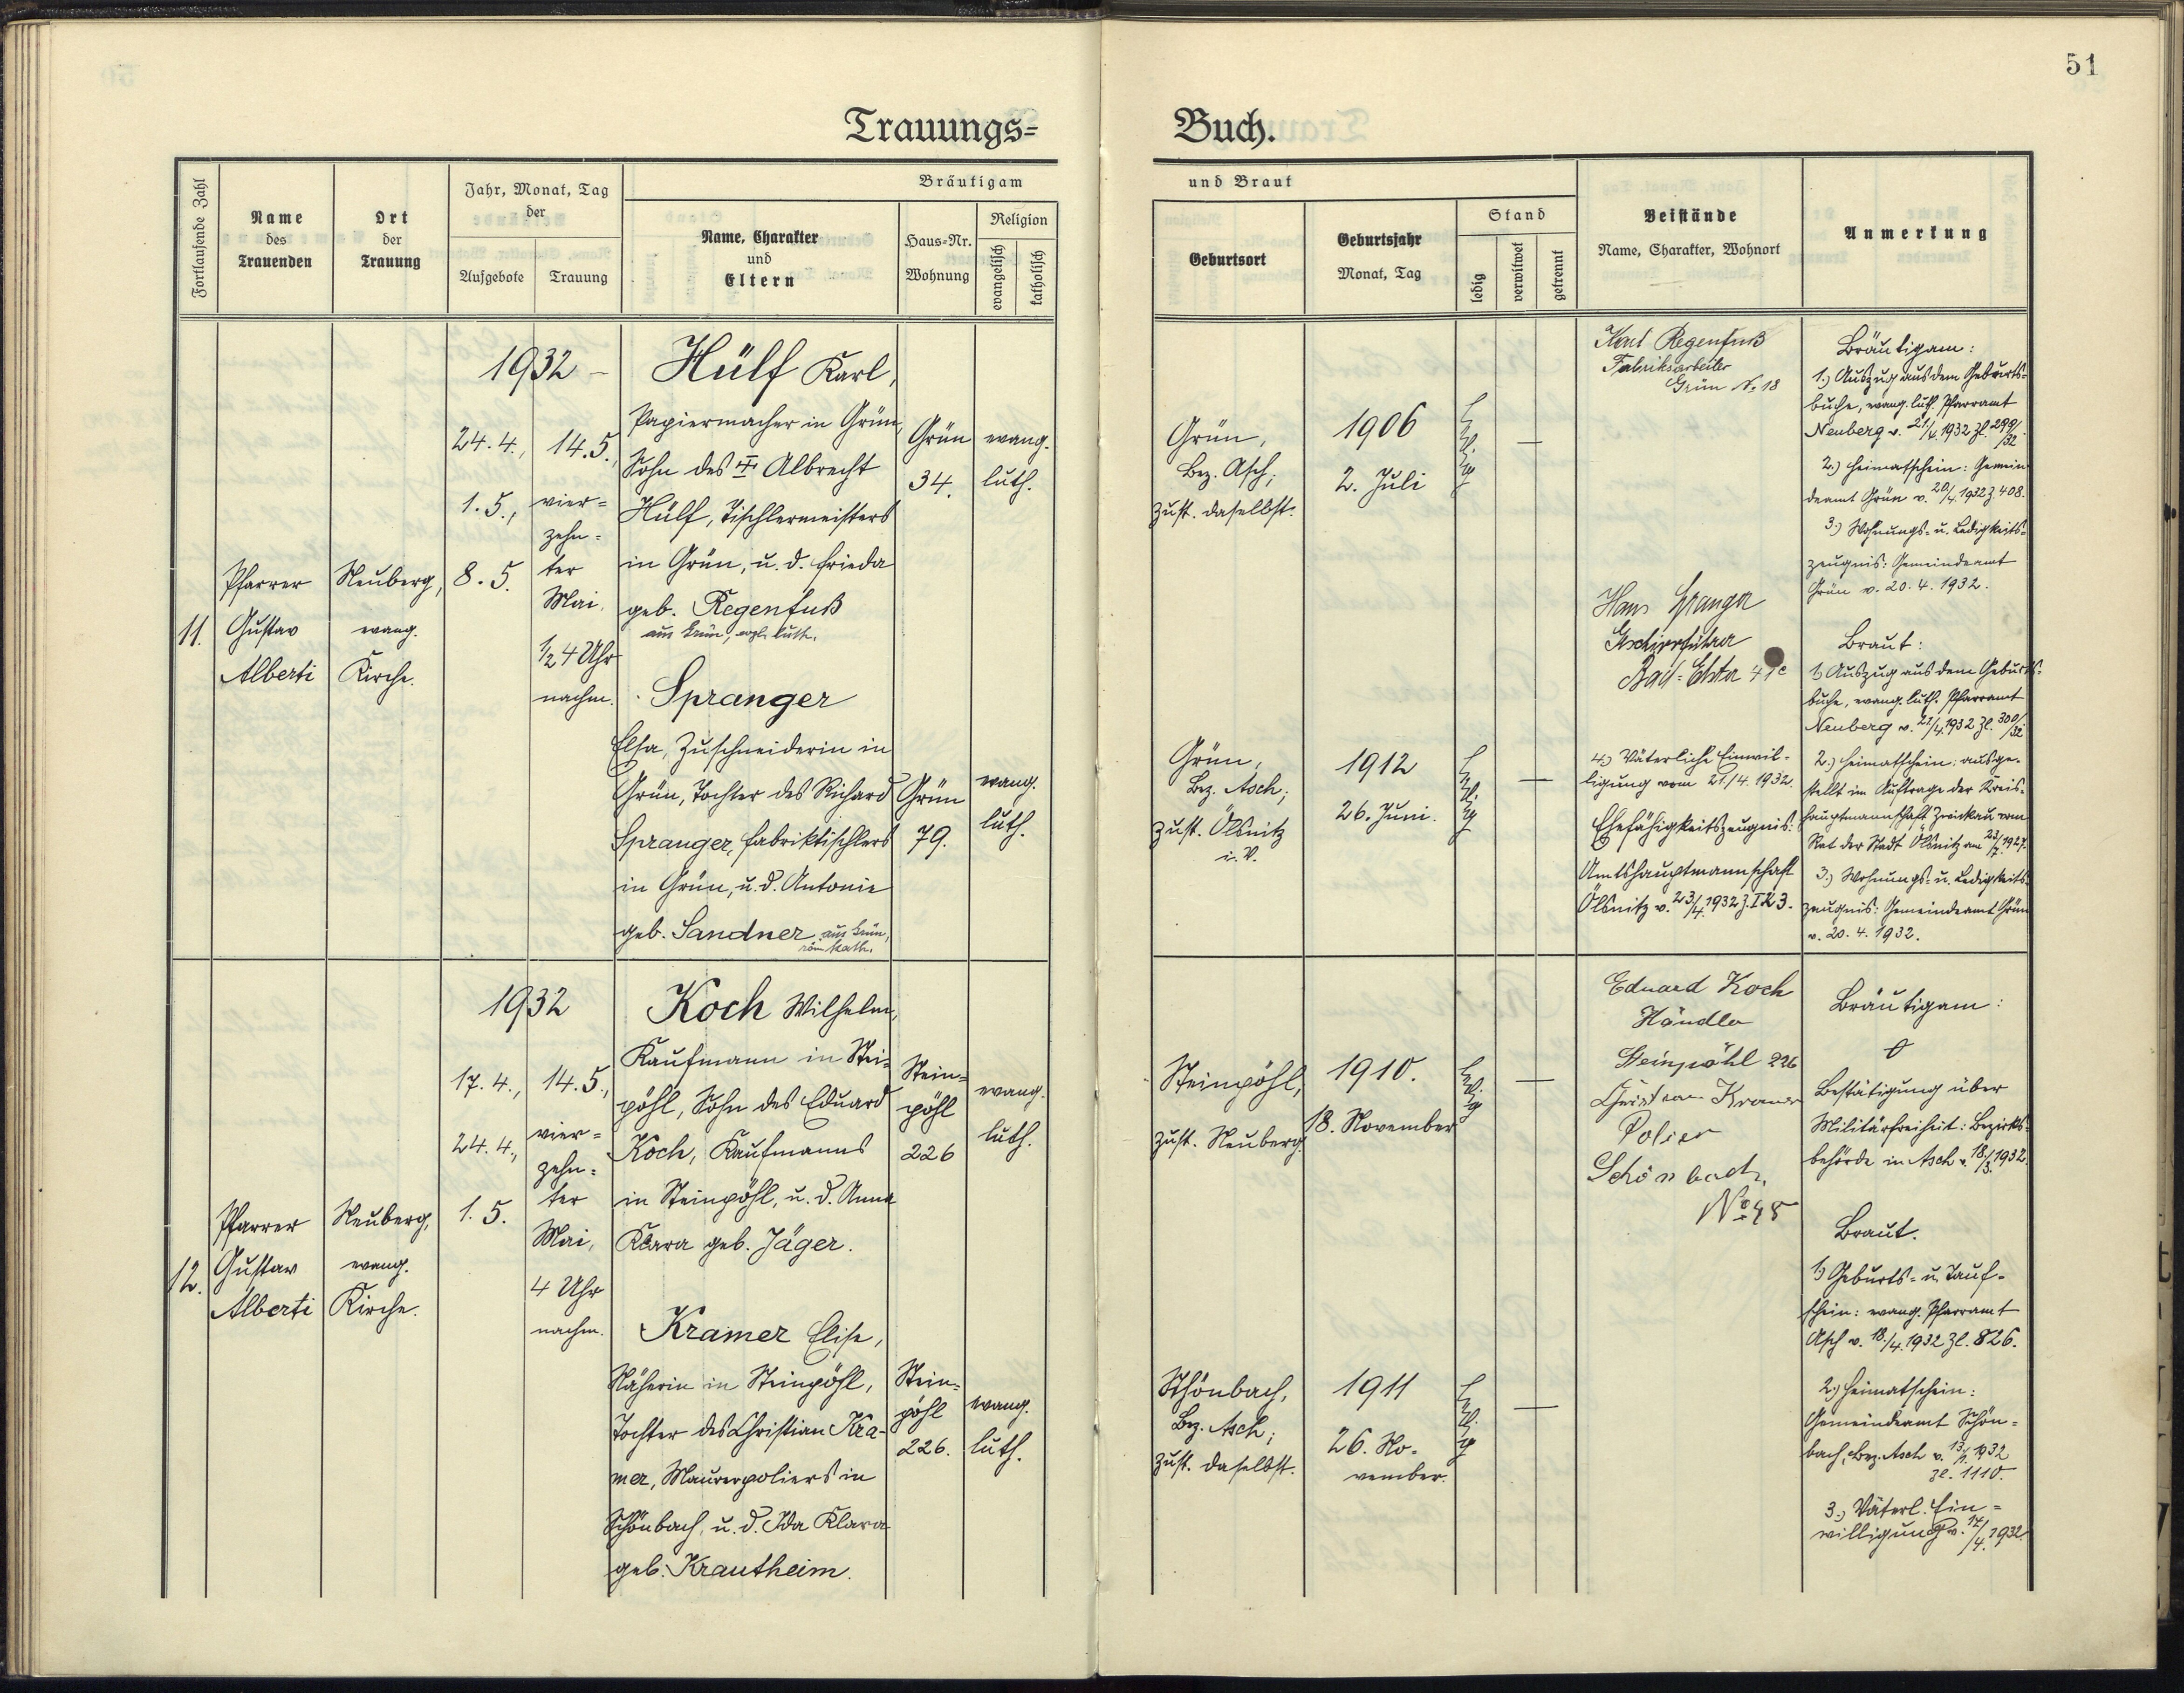 51
Trauungs= Buch.
Fortlaufende Zahl
Name
des
Trauenden
Ort
der
Trauung
Jahr, Monat, Tag
der
Aufgebote Trauung
Bräutigam
Name, Charakter
und
Eltern
Haus=Nr.
Wohnung
Religion
evangelisch
katholisch
und Braut
Geburtsort
Geburtsjahr
Monat, Tag
Stand
ledig
verwitwet
getrennt
Beistände
Name, Charakter, Wohnort
Anmerkung
11.
Pfarrer
Gustav
Alberti
Neuberg,
evang.
Kirche.
1932 –
24. 4.,
1. 5.,
8. 5.
14. 5.,
vier=
zehn=
ter
Mai,
½ 4 Uhr
nachm.
Hülf Karl,
Papiermacher in Grün,
Sohn des Albrecht
Hülf, Tischlermeisters
in Grün, u. d. Frieda
geb. Regenfuß
aus Grün, evgl. luth.
Grün
34.
evang.
luth.
Grün,
Bez. Asch,
zust. daselbst.
1906
2. Juli
ledig
—
Karl Regenfuß
Fabriksarbeiter
Grün N. 18
Hans Spranger
Geschirrführer
Bad=Elster
Bräutigam:
1.) Auszug aus dem Geburts=
buche, evang. luth. Pfarramt
Neuberg v. 21/4. 1932 Zl. 299/32.
2.) Heimatschein: Gemein=
deamt Grün v. 20/4. 1932 Z. 408.
3.) Wohnungs= u. Ledigkeits=
zeugnis: Gemeindeamt
Grün v. 20. 4. 1932.
Spranger
Elsa, Zuschneiderin in
Grün, Tochter des Richard
Spranger, Fabriktischlers
in Grün, u. d. Antonie
geb. Sandner aus Grün,
röm. kath.
Grün
79.
evang.
luth.
Grün,
Bez. Asch;
zust. Ölsnitz
i. V.
1912
26. Juni.
ledig
—
4.) Väterliche Einwil=
ligung vom 21/4. 1932.
Ehefähigkeitszeugnis:
Amtshauptmannschaft
Ölsnitz v. 23/4. 1932 Z. I 23.
Braut:
1.) Auszug aus dem Geburts=
buche, evang. luth. Pfarramt
Neuberg v. 21/4. 1932 Zl. 300/32
2.) Heimatschein: ausge=
stellt im Auftrage der Kreis=
hauptmannschaft Zwickau vom
Rat der Stadt Ölsnitz am 23/7. 1927.
3.) Wohnungs= u. Ledigkeits=
zeugnis: Gemeindeamt Grün
v. 20. 4. 1932.
12.
Pfarrer
Gustav
Alberti
Neuberg,
evang.
Kirche.
1932
17. 4.,
24. 4.,
1. 5.
14. 5.,
vier=
zehn=
ter
Mai,
4 Uhr
nachm.
Koch Wilhelm,
Kaufmann in Stei=
pöhl, Sohn des Eduard
Koch, Kaufmanns
in Steinpöhl, u. d. Anna
Klara geb. Jäger.
Stein=
pöhl
226
evang.
luth.
Steinpöhl,
zust. Neuberg.
1910.
18. November
ledig
—
Eduard Koch
Händler
Steinpöhl 226
Christian Kramer
Polier
Schönbach,
No 48
Bräutigam:
Bestätigung über
Militärfreiheit: Bezirks=
behörde in Asch v. 18/3. 1932.
Kramer Elise,
Näherin in Steinpöhl,
Tochter des Christian Kra=
mer, Maurerpoliers in
Schönbach, u. d. Ida Klara
geb. Krautheim.
Stein=
pöhl
226.
evang.
luth.
Schönbach,
Bez. Asch;
zust. daselbst.
1911
26. No=
vember.
ledig
—
Braut.
1.) Geburts= u. Tauf=
schein: evang. Pfarramt
Asch v. 18/4. 1932 Zl. 826.
2.) Heimatschein:
Gemeindeamt Schön=
bach, Bez. Asch v. 1932
Zl. 1110.
3.) Väterl. Ein=
willigung v. 17/4. 1932.